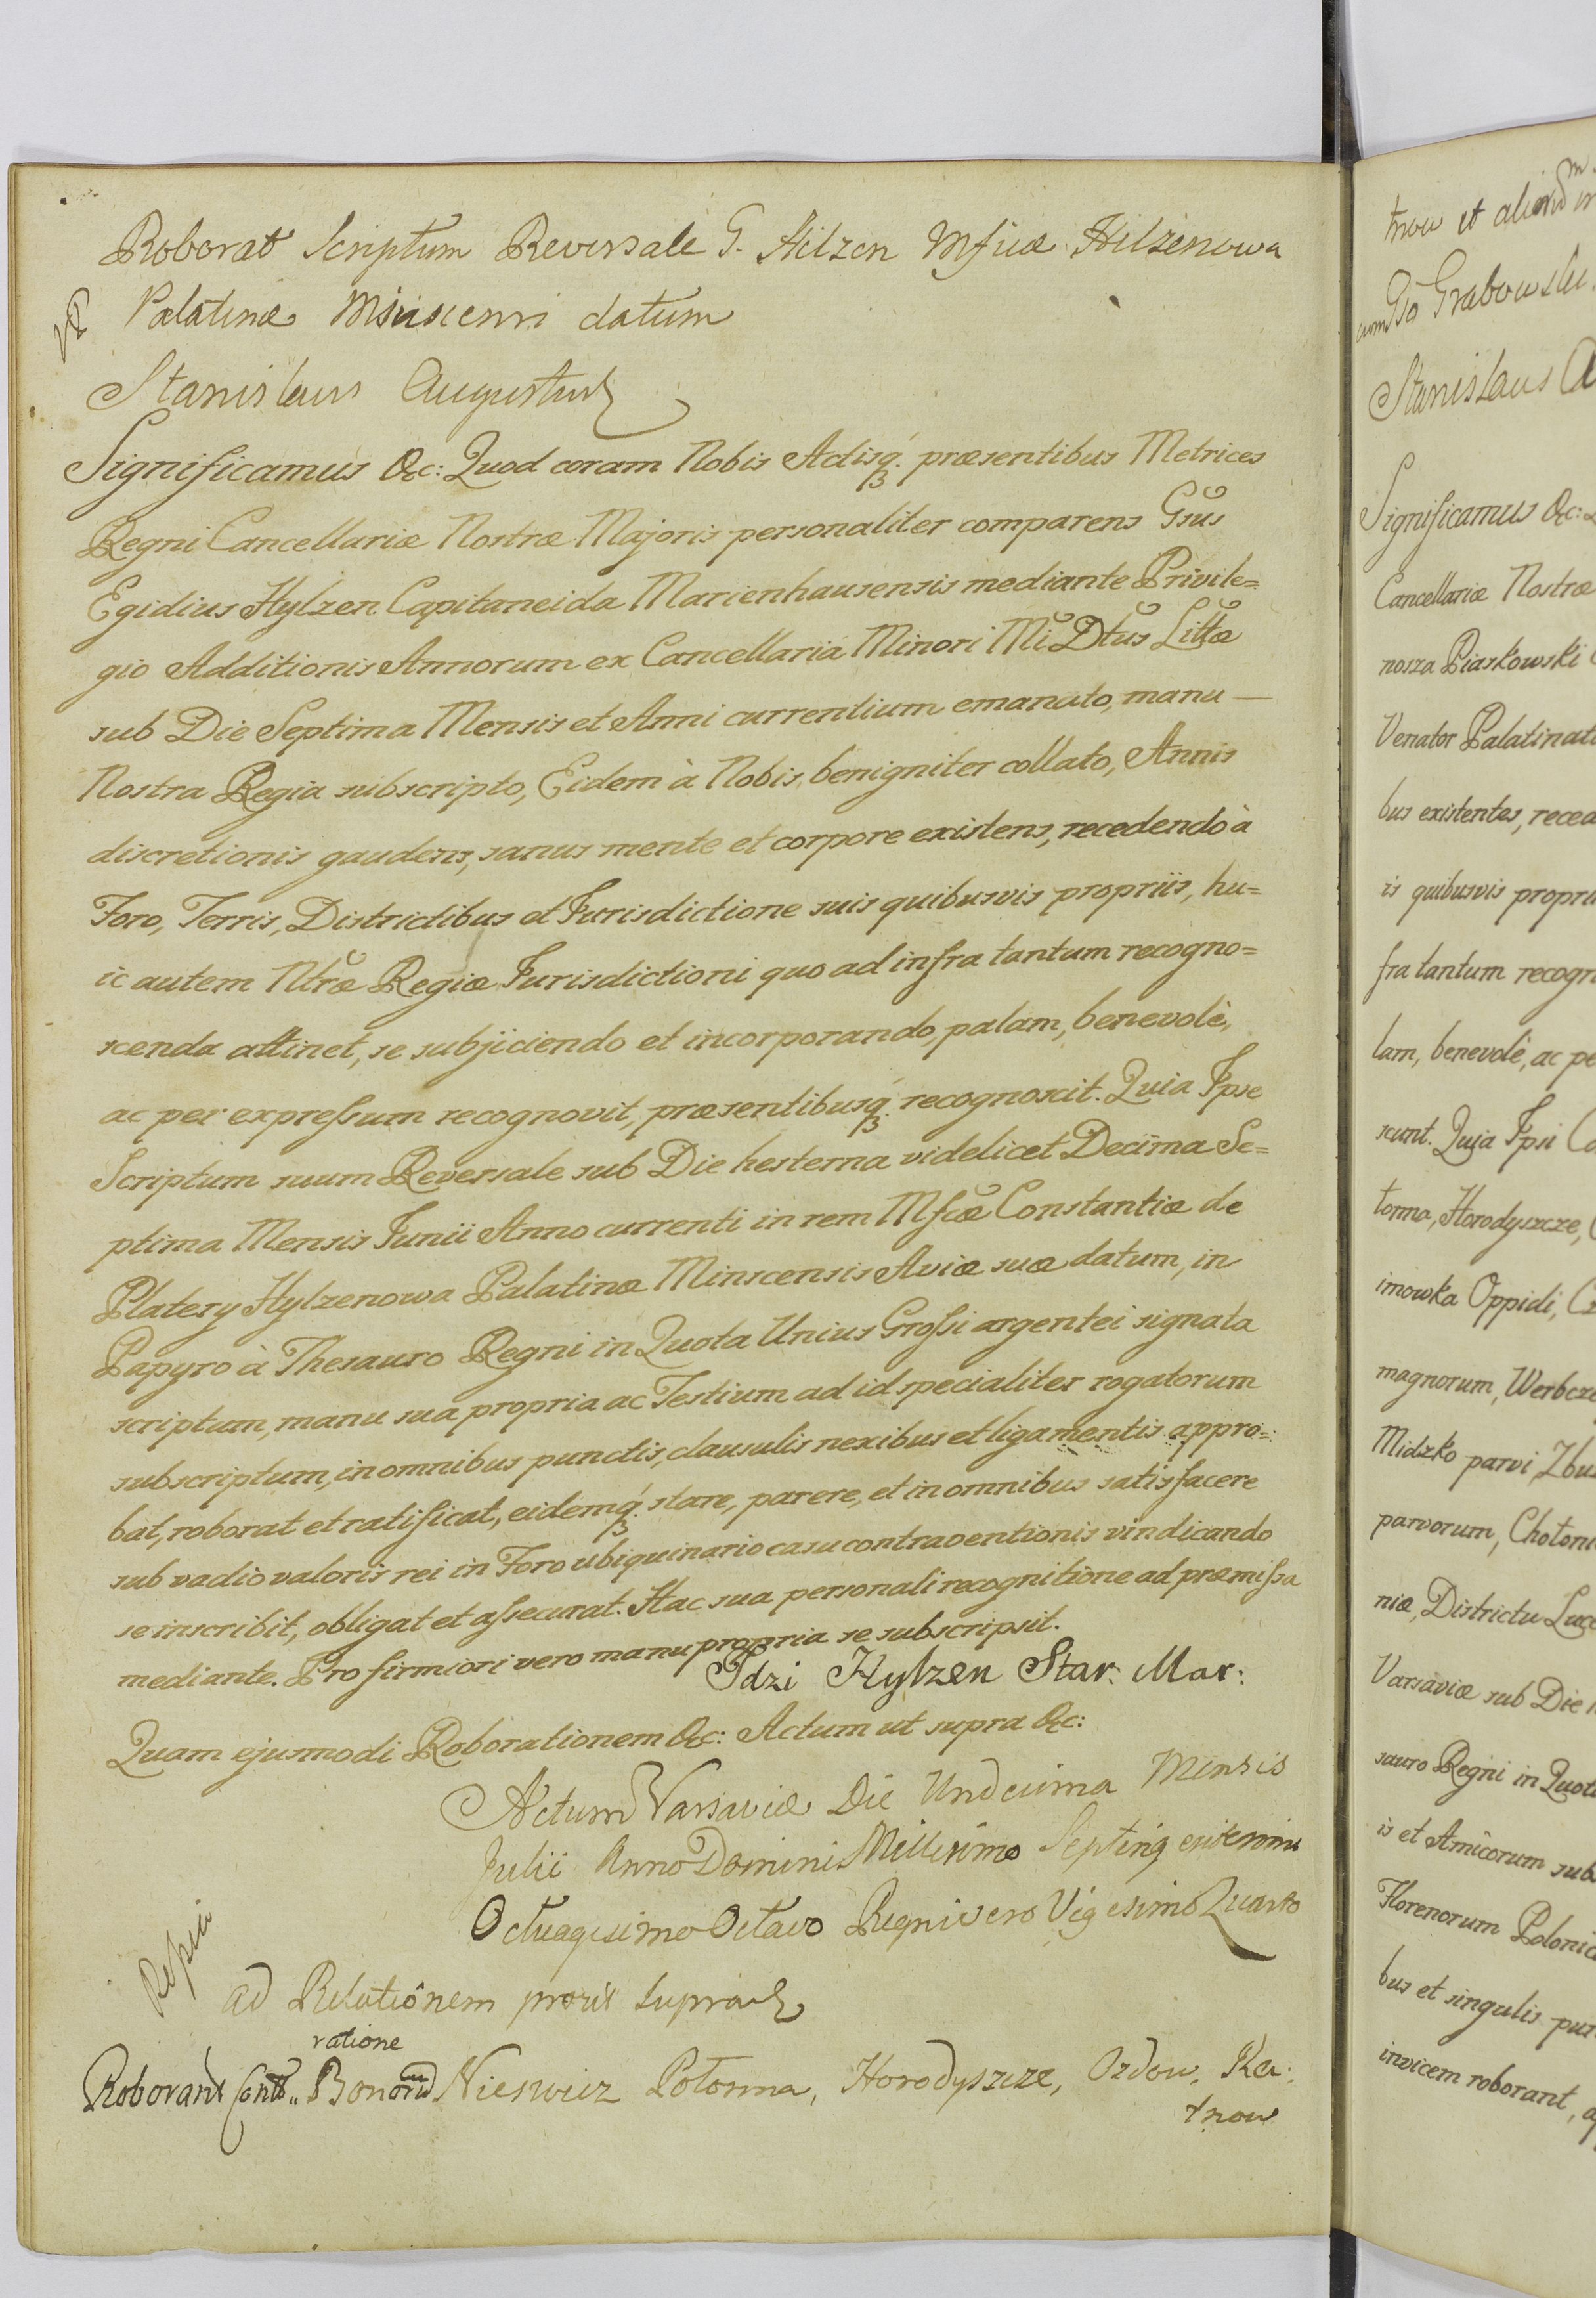 Roborat Scriptum Reversale G. Hilzen Mficæ Hilzenowa
Palatinæ Minscensi datum
Stanislaus Augustus
Significamus &c: Quod coram Nobis Actisq́ꝫ præsentibus Metrices
Regni Cancellariæ Nostræ Majoris personaliter comparens Gsus
Egidius Hylzen Capitaneida Marienhausensis mediante Privile=
gio Additionis Annorum ex Cancellaria Minori Mi Dtus Littæ
sub Die Septima Mensis et Anni currentium emanato, manu —
Nostra Regia subscripto, Eidem à Nobis benigniter collato, Annis
discretionis gaudens, sanus mente et corpore existens, recedendo à
Foro, Terris, Districtibus et Jurisdictione suis quibusvis propriis, hu=
ic autem Ntræ Regiæ Jurisdictioni quo ad infra tantum recogno=
scenda attinet, se subjiciendo et incorporando, palam, benevolè,
ac per expressum recognovit, præsentibusq́ꝫ recognoscit. Quia Ipse
Scriptum suum Reversale sub Die hesterna videlicet Decima Se=
ptima Mensis Junii Anno currenti in rem Mfcæ Constantiæ de
Platery Hylzenowa Palatinæ Minscensis Aviæ suæ datum, in
Papyro à Thesauro Regni in Quota Unius Grossi argentei signata
scriptum, manu sua propria ac Testium ad id specialiter rogatorum
subscriptum, in omnibus punctis, clausulis nexibus et ligamentis appro=
bat, roborat et ratificat, eidemq́ꝫ stare, parere, et in omnibus satisfacere
sub vadio valoris rei in Foro ubiquinario casu contraventionis vindicando
se inscribit, obligat et assecurat. Hac sua personali recognitione ad præmissa
mediante. Pro firmiori vero manu propria se subscripsit.
Idzi Hylzen Star: Mar:
Quam ejusmodi Roborationem &c: Actum ut supra &c:
Actum Varsaviæ Die Undecima Mensis
Julii Anno Domini Millesimo Septingentesimo
Octuagesimo Octavo Regni vero Vigesimo Quarto
ad Relationem prout supra
ratione
Roborant Contr.. Bonorum Nieswicz Potorma, Horodyszcze, Ozdow, Ka:
tnow
tnow et aliorum
cum Gso Grabowski
Stanislaus A
Significamus &c:
Cancellariæ Nostræ
nosza Piaskowski
Venator Palatinat
bus existentes, reced
is quibusvis propri
fra tantum recogn
lam, benevolè, ac pe
scunt. Quia Ipsi Co
torma, Horodyszcze,
imowka Oppidi,
magnorum, Werbcze
Midzko parvi, Zbu
parvorum, Choton
niæ, Districtu Luce
Varsaviæ sub Die
sauro Regni in Quot
is et Amicorum sub
Florenorum Poloni
bus et singulis pu
invicem roborant, a